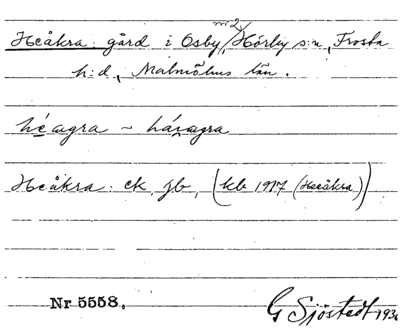 Heåkra: gård i Osby nr 2, Hörby s:n, Frosta
h:d, Malmöhus län.
héagra ~ háragra
Heåkra: ek, jb, (kb 1917 (Heeåkra))
Nr 5558. G Sjöstedt 1936